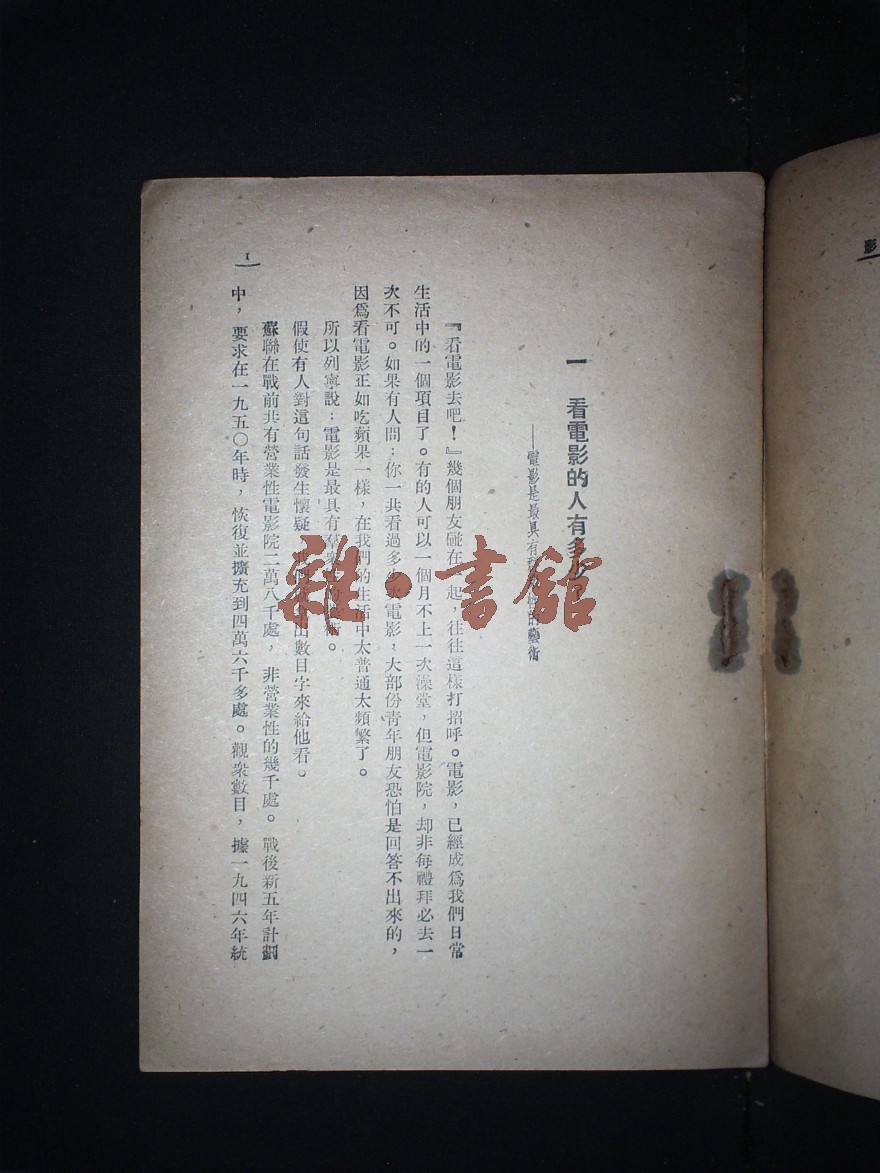 一　看電影的人有多少？
——電影是最具有群衆性的藝術
『看電影去吧！』幾個朋友碰在一起，往往這樣打招呼。電影，已經成爲我們日常
生活中的一個項目了。有的人可以一個月不上一次澡堂，但電影院，却非每禮拜必去一
次不可。如果有人問：你一共看過多少次電影，大部份靑年朋友恐怕是回答不出來的，
因爲看電影正如吃蘋果一樣，在我們的生活中太普通太頻繁了。
所以列寧說：電影是最具有羣衆性的藝術。
假使有人對這句話發生懷疑，出數目字來給他看。
蘇聯在戰前共有營業性電影院二萬八千處，非營業性的幾千處。戰後新五年計劃
中，要求在一九五〇年時，恢復並擴充到四萬六千多處。觀衆數目，據一九四六年統
1
影
雜·書館